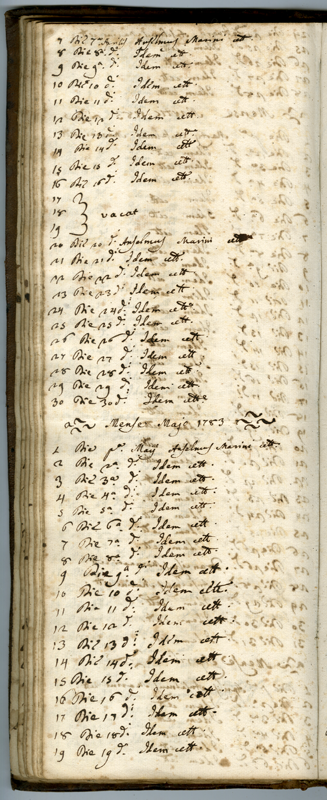 7 Die 7ª dº Anselmus Marini cett
8 Die 8ª dº Idem cett
9 Die 9ª dº Idem cett
10 Die 10 dº Idem cett
11 Die 11 dº Idem cett
12 Die 12 dº Idem cett
13 Die 13 dº Idem cett
14 Die 14 dº Idem cett
15 Die 15 dº Idem cett
16 Die 16 dº Idem cett
17
18 } vacat
19
20 Die 20 dº Anselmus Marini cett
21 Die 21 dº Idem cett
22 Die 22 dº Idem cett
23 Die 23 dº Idem cett
24 Die 24 dº Idem cett
25 Die 25 dº Idem cett
26 Die 26 dº Idem cett
27 Die 27 dº Idem cett
28 Die 28 dº Idem cett
29 Die 29 dº Idem cett
30 Die 30 dº Idem cett
Mense Maje 1783
1 Die pª Maÿ Anselmus Marini cett
2 Die 2ª dº Idem cett
3 Die 3ª dº Idem cett
4 Die 4ª dº Idem cett
5 Die 5ª dº Idem cett
6 Die 6ª dº Idem cett
7 Die 7ª dº Idem cett
8 Die 8ª dº Idem cett
9 Die 9ª dº Idem cett
10 Die 10 dº Idem cett
11 Die 11 dº Idem cett
12 Die 12 dº Idem cett
13 Die 13 dº Idem cett
14 Die 14 dº Idem cett
15 Die 15 dº Idem cett
16 Die 16 dº Idem cett
17 Die 17 dº Idem cett
18 Die 18 dº Idem cett
19 Die 19 dº Idem cett